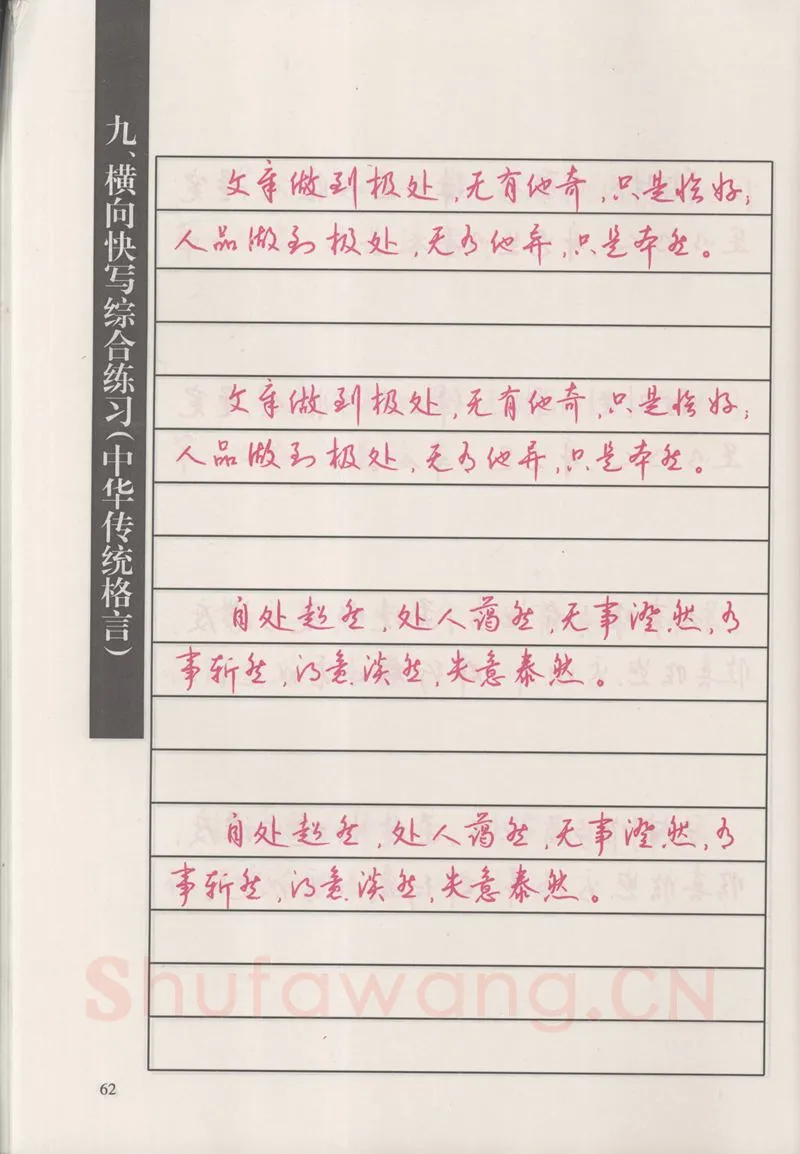 九、横向快写综合练习(中华传统格言)
文章做到极处,无有他奇,只是恰好;
人品做到极处,无有他异,只是本然。
文章做到极处,无有他奇,只是恰好;
人品做到极处,无有他异,只是本然。
自处超然,处人蔼然,无事澄然,有
事斩然,得意淡然,失意泰然。
自处超然,处人蔼然,无事澄然,有
事斩然,得意淡然,失意泰然。
Shufawang.CN
62